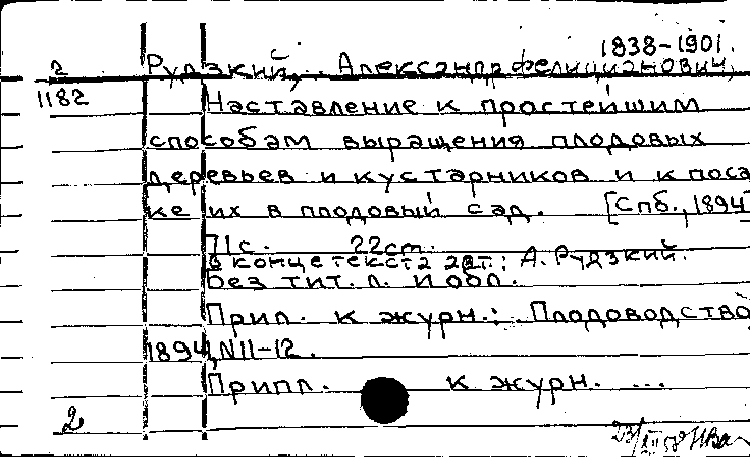 1838-1901.
2 Рудзкий, Александр Фелицианович,
1182 Наставление к простейшим
способам выращения плодовых
деревьев и кустарников и к поса
ке их в плодовый сад. [Спб., 1894]
71с. 22ст.
В конце текста авт.: А. Рудзкий.
Без тит. л. и обл.
Прил. к журн.: Плодоводство
1894, N11-12.
Прилл. к журн. ...
2